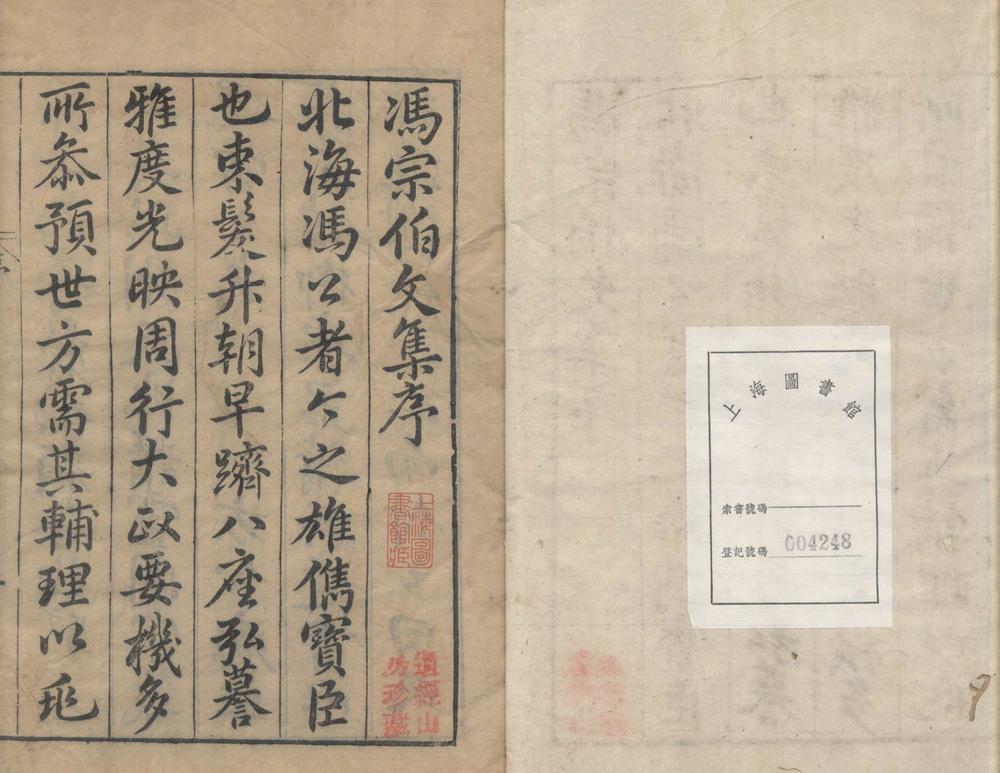 上海圖書館
索書號碼
登記號碼 004248
馮宗伯文集序
上海圖書館藏
北海馮公者今之雄儁寶臣
也束髮升朝早躋八座弘謩
雅度光映周行大政要機多
所叅預世方需其輔理以